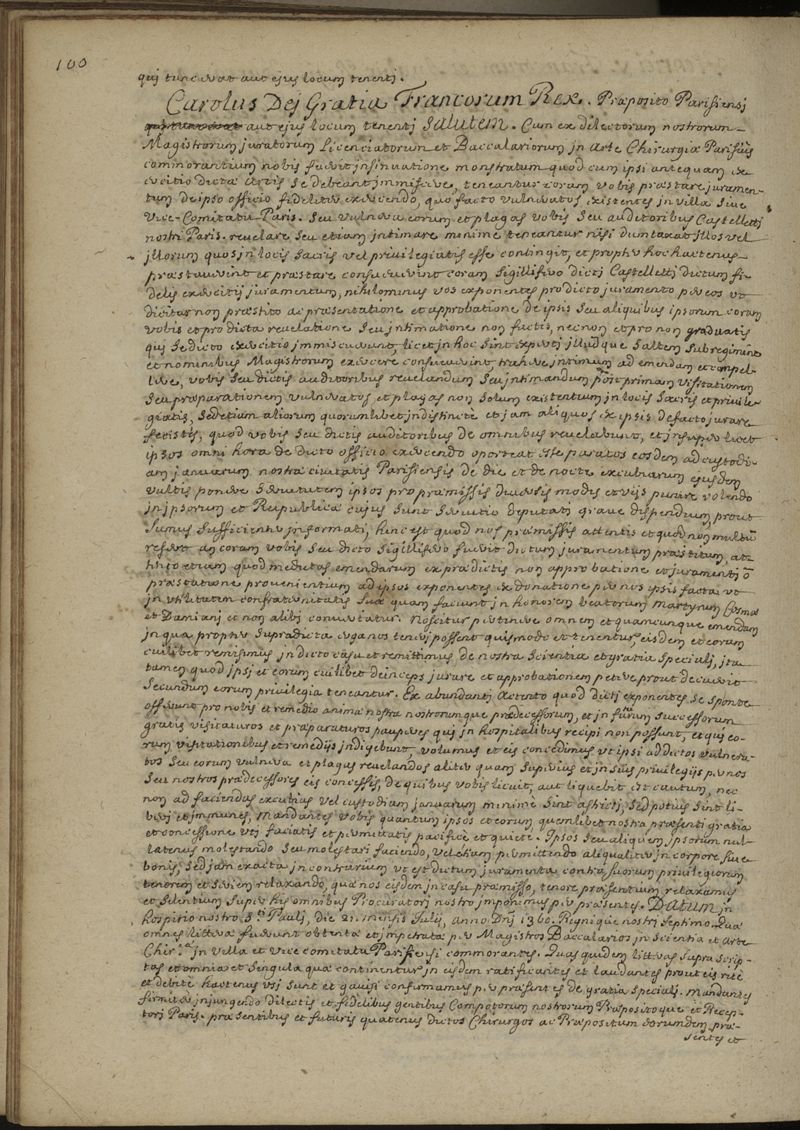 100
quj tunc erat aut ejus locum tenentj.
Carolus Dej Gratia Francorum Rex. Præposito Parisiensj
aut ejus locum tenentj Salutem. Cum ex dilectorum nostrorum
Magistrorum juratorum Licenciatorum et Baccalariorum jn Arte Chirurgiæ Parisiis
commorantium nobis fuerit jnsinuatione monstratum quod cum ipsi antequam ex
ercitio dictæ Artis se debeant jmmiscere, teneantur coram vobis præstare juramen-
tum de ipso officio fideliter exercendo, quo facto vulneratos existentes jn villa siue
Vice-Comitatu Paris. seu vulnera eorum et plagas vobis seu auditoribus Castelletj
nostri Paris. reuelare seu etiam jntimare minime teneantur nisi duntaxat jllos vel
jllorum quos jn locis sacris vel priuilegiatis esse contingit, et propter hoc hactenus
præstauerint et præstare consueuerint coram sigillifero dictj Castelletj dictum fi-
delis exercitij juramentum, nihilominus vos exponentes pro dicto juramento per eos vt
dicitur non præstito ac præsentatione et approbatione de ipsis seu aliquibus ipsorum coram
vobis et pro dicta reuelatione seu jntimatione non factis, necnon et pro non graduatis
quj se dicto exercitio jmmiscuerunt, licet jn hoc sint expertj jlludque saltem sub regimine
et nominibus Magistrorum exercere consueuerint, trahere jntimum ad emendam et compel-
lere, vobis seu dictis auditoribus reuelandum seu jntimandum post primam visitationem
seu præparationem vulneratos et plagas non solum existentium jn locis sacris et priuile
giatis, sed etiam aliorum quorumlibet jndistincte et jam aliquos ex ipsis de facto jurare
fecistis, quod vobis seu dictis auditoribus de omnibus reuelabunt, et jnsuper licet
ipsos omni hora de dicto officio exercendo oporteat esse paratos eosdem ad custodi-
am januarum nostræ ciuitatis Parisiensis de die et de nocte excubiarum ejusdem
vultis ponere & seruitutem ipsos pro præmissis diuersis modis et vijs punire volendo
jn jpsorum et Reipublicæ cujus sunt seruitio deputati graue dispendium prout
sumus sufficienter jnformati, hinc est quod nos præmissis attentis et quod non multum
refert an coram vobis seu dicto sigillifero fuerit dictum juramentum præstitum, at-
tento etiam quod medietas emendarum ex prædictis non approbatione et juramentj
præstatione prouenientium ad ipsos exponentes ex donatione per nos ipsis facta vt
jn vtilitatem confraternitatis suæ quam faciunt jn honorem beatorum martyrum Cosmæ
et Damianj et non alibj conuertatur. Noscitur pertinere omnem et quamcunque emendam
jn qua propter supradicta erga nos tenerj possent quismodo et tenentur eisdem et eorum
cuilibet remisimus jn dicto casu et remittimus de nostra scientia et gratia specialj, jta
tamen quod jpsj et eorum cuilibet deinceps jurare et approbationem petere prout decuerit
secundum eorum priuilegia teneantur. Ex abundantj attento quod dictj exponentes se sponte
offerunt pro nobis et remedio animæ nostræ nostrorumque prædecessorum, et jn futurum successorum
gratis visitaturos et præparaturos pauperes quj jn hospitalibus recipi non possunt, et quj eo-
rum visitationibus et remedijs jndigebunt, volumus et eis concedimus vt ipsi ad dictos vulnera-
tos seu eorum vulnera et plagas reuelandos aliter quam superius et jn suis priuilegijs per nos
seu nostros prædecessores eis concessis, de quibus vobis licuit, aut liquebit sit cautum, nec
non ad faciendas excubias vel custodiam januarum minime sint astrictj, sed potius sint li-
berj et jmmunes, Mandantes vobis quatinus ipsos et eorum quemlibet nostra præsentj gratia
et concessione vtj faciatis et permittatis pacifice et quiete. Ipsos seu aliquem jpsorum nul-
latenus molestando seu molestari faciendo, vel etiam permittendo aliqualiter jn corpore siue
bonis, sed jam exacta jn contrarium vt est dictum juramenta contra suorum priuilegiorum
tenorem et seriem relaxando, quæ nos eisdem jn casu præmisso, tenore præsentium relaxamus
et silentium super his omnibus Procuratorj nostro jmponimus per præsentes. Datum jn
Hospitio nostro Sti. Paulj, die 21. mensis Julij, anno Dnj 1360. Regnique nostrj septimo. Quæ
omnes litteræ fuerunt obtentæ et jmpetratæ per Magistros Baccalarios jn scientia et Arte
Chir.æ jn villa et vice comitatu Parisiensi commorantes. Quas quidem litteras suprascrip-
tas et omnia et singula quæ continentur jn eisdem ratificantes et laudantes prout eis rite
et debite hactenus vsj sunt et gauisi confirmamus per præsentes de gratia specialj. Mandantes
firmiter jnjungendo Dilectis et fidelibus gentibus Compotorum nostrorum Præpositoque et Recep-
torj Paris. præsentibus et futuris quatenus dictos Chirurgos ac Præpositum eorumdem præ-
sentes et